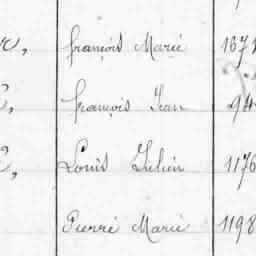 françois Marie 1671
françois Jean 94
Louis Julien 1176
Pierre Marie 1198